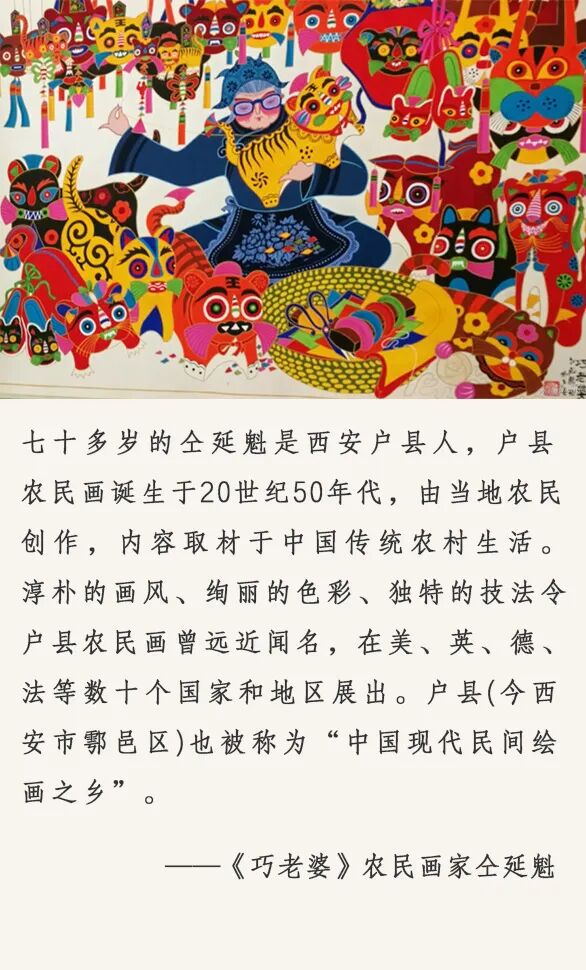 七十多岁的仝延魁是西安户县人，户县
农民画诞生于20世纪50年代，由当地农民
创作，内容取材于中国传统农村生活。
淳朴的画风、绚丽的色彩、独特的技法令
户县农民画曾远近闻名，在美、英、德、
法等数十个国家和地区展出。户县(今西
安市鄠邑区)也被称为“中国现代民间绘
画之乡”。
——《巧老婆》农民画家仝延魁